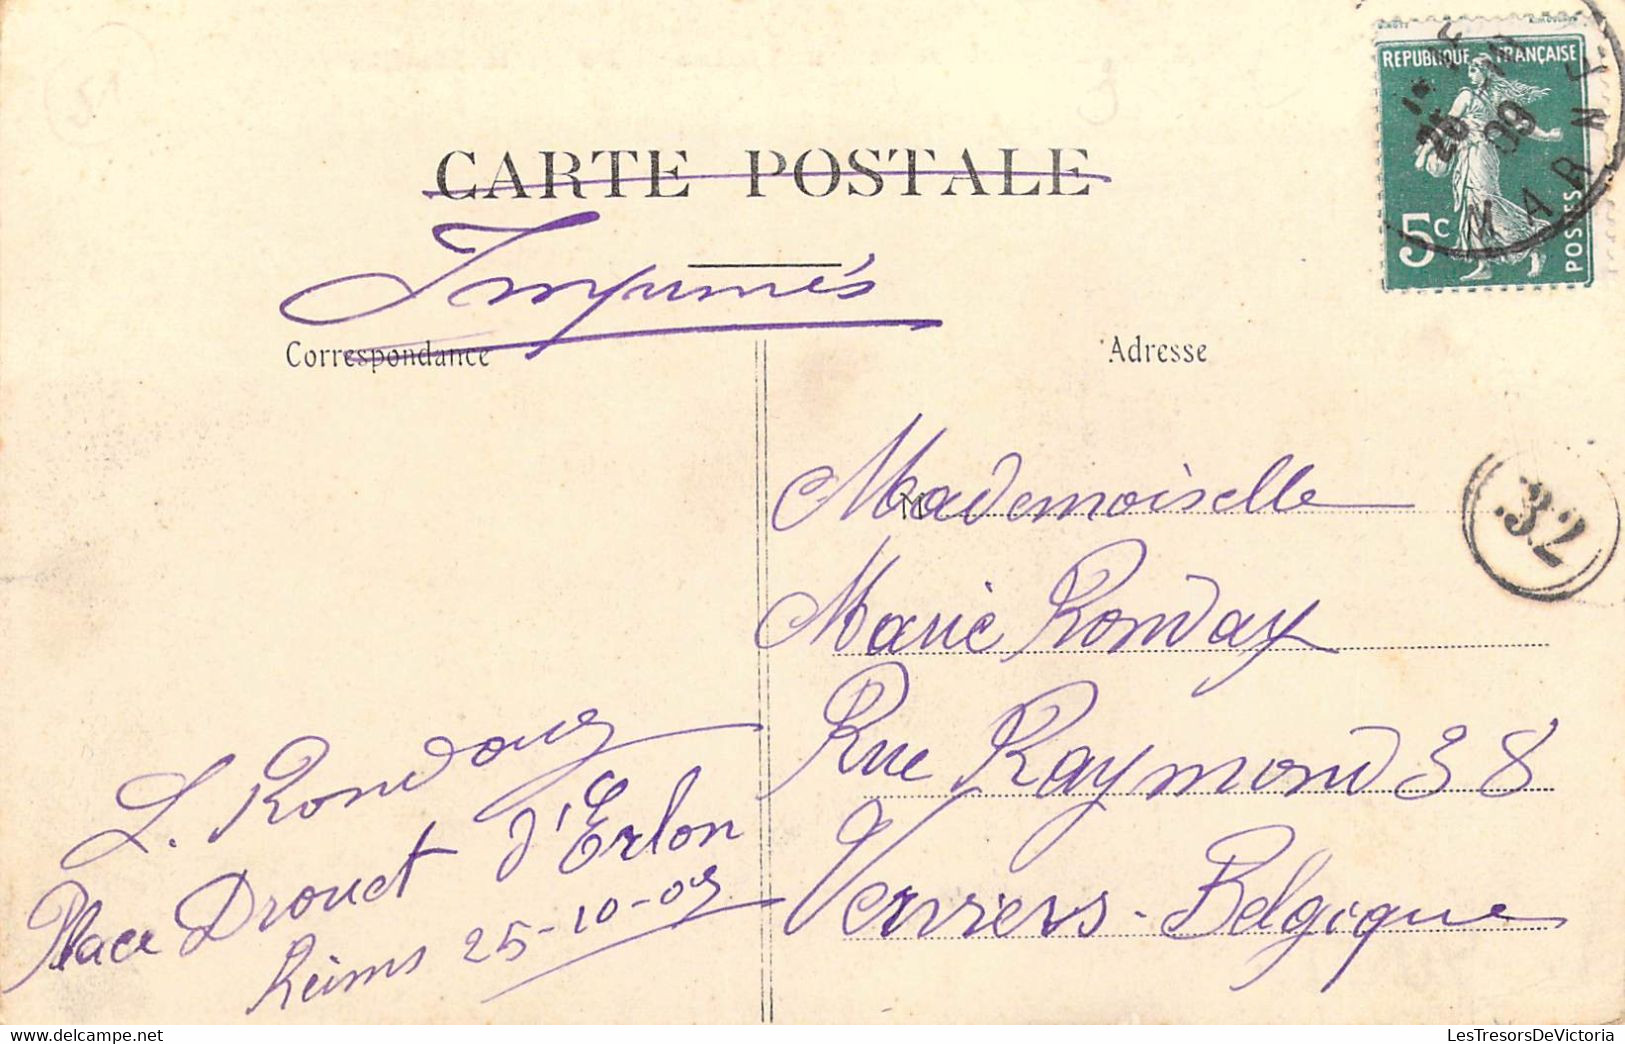 CARTE POSTALE
Imprimés
Correspondance
Adresse
REPUBLIQUE FRANÇAISE
5c
POSTES
26
09
MARNE
32
M
Mademoiselle
Marie Ronday
Rue Raymond 38
Verviers - Belgique
L. Ronday
Place Drouet d'Erlon
Reims 25-10-09
LesTresorsDeVictoria